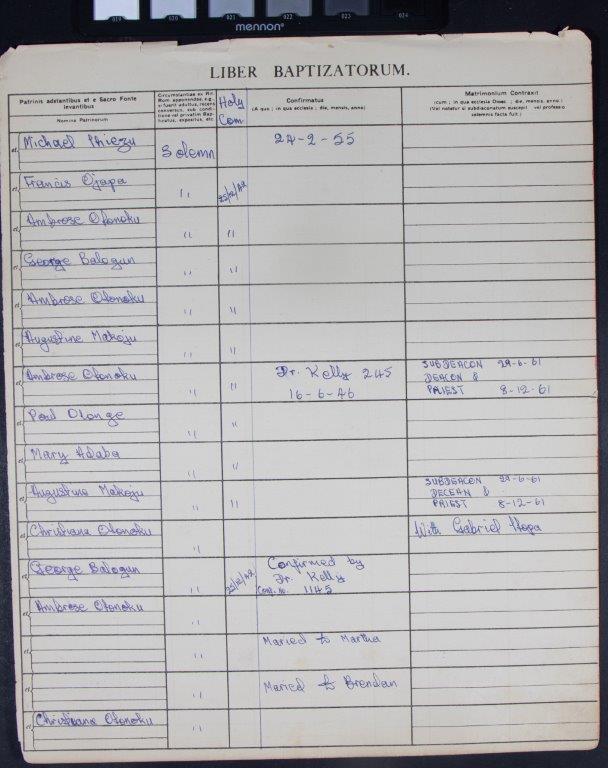 019 020 021 022 023 024
mennon
LIBER BAPTIZATORUM.
Patrinis adstantibus et e Sacro Fonte
levantibus
Nomina Patrinorum
Circumstantiae ex Rit.
Rom. apponendae, e.g.
si fuerit adultus, recens
conversus, sub condi-
tione vel privatim Bap-
tizatus, expositus, etc
Holy
Com
Confirmatus
(A quo; in qua ecclesia; die, mensis, anno)
Matrimonium Contraxit
(cum; in qua ecclesia Dioec.; die, mensis, anno.)
(Vel notetur si subdiaconatum suscepit vel professio
solemnis facta fuit.)
Michael Ihiezu Solemn 24-2-55
Francis Ojapa " 25/12/42
Ambrose Otonoku " "
George Balogun " "
Ambrose Otonoku " "
Augustine Makoju " "
Ambrose Otonoku " " Dr. Kelly 245 SUBDEACON 29-6-61
DEACON &
16-6-46 PRIEST 8-12-61
Paul Olonge " "
Mary Adaba "
Augustine Makoju " " SUBDEACON 29-6-61
DECEAN &
PRIEST 8-12-61
Christiana Otonoku " With Gabriel Itopa
George Balogun " 25/12/42 Confirmed by
Dr. Kelly
Conf. no. 1145
Ambrose Otonoku "
" Maried to Martha
" Maried to Brendan
Christiana Otonoku "